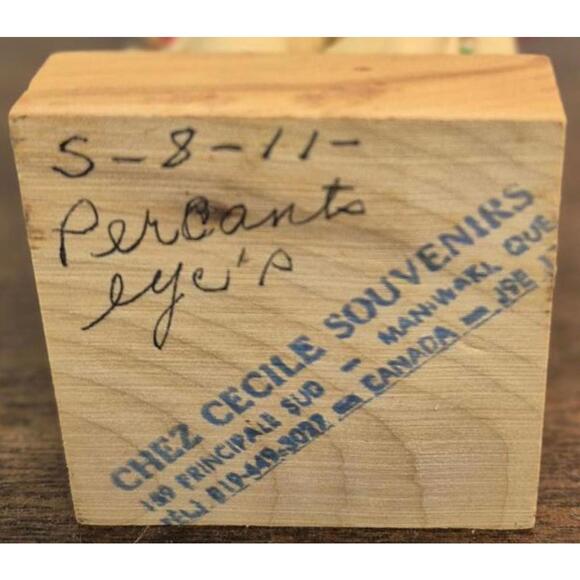 S-8-11-
Percants
eye's
CHEZ CECILE SOUVENIRS
189 PRINCIPALE SUD - MANIWAKI, QUE
TÉL.: 819-449-3022 - CANADA - J9E